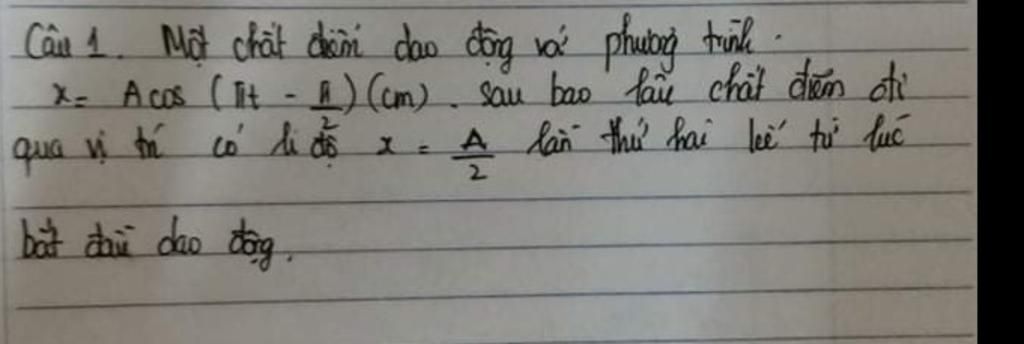 Câu 1. Một chất điểm dao động với phương trình.
x = A cos (πt - π/2) (cm). sau bao lâu chất điểm đi
qua vị trí có li độ x = A/2 lần thứ hai kể từ lúc
bắt đầu dao động.